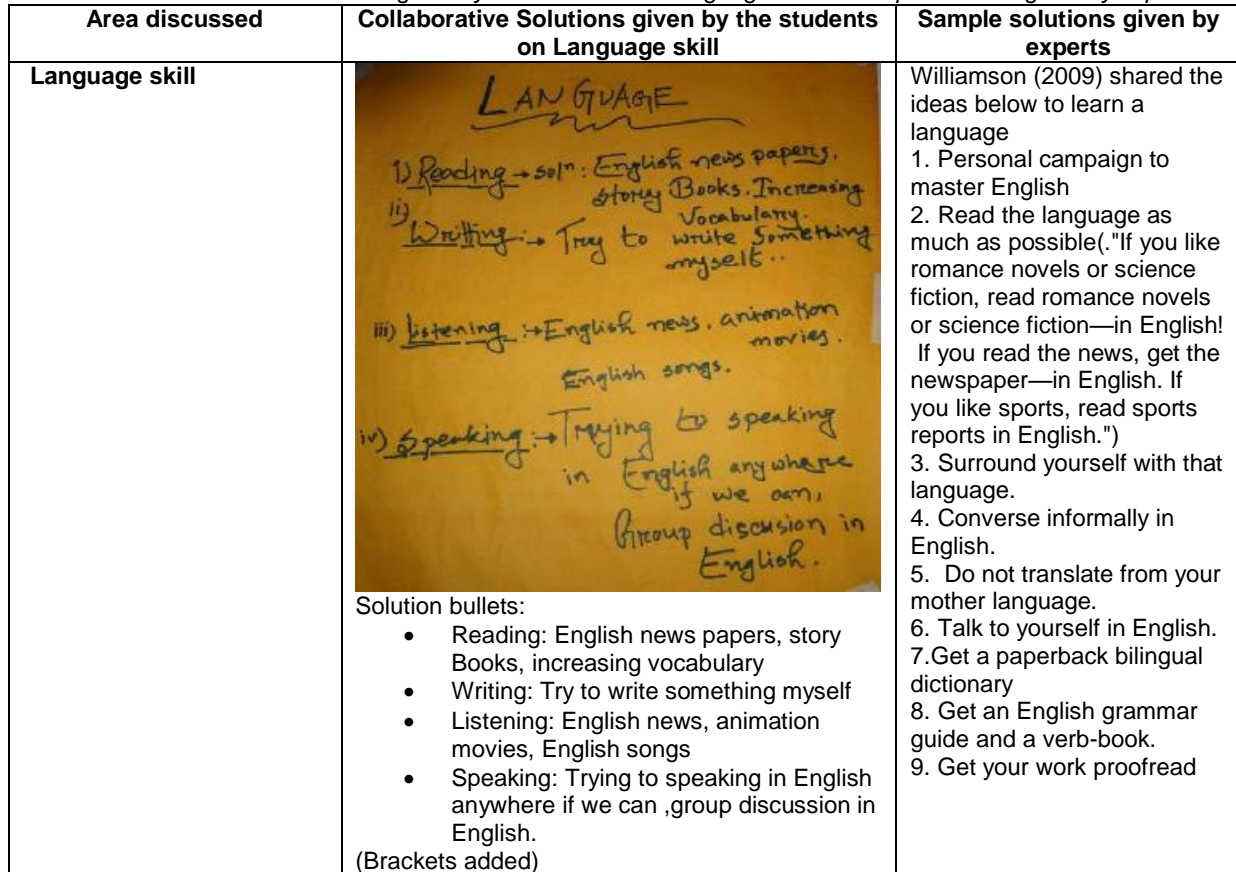 Area discussed
Collaborative Solutions given by the students
on Language skill
Sample solutions given by
experts
Language skill
LANGUAGE
i) Reading → soln: English news papers,
storey Books. Increasing
Vocabulary.
ii)
Writting :→ Trey to write something
myself..
iii) Listening :→ English news, animation
movies.
English songs.
iv) Speaking :→ Treying to speaking
in English anywhere
if we can,
Group discusion in
English.
Solution bullets:
• Reading: English news papers, story
Books, increasing vocabulary
• Writing: Try to write something myself
• Listening: English news, animation
movies, English songs
• Speaking: Trying to speaking in English
anywhere if we can ,group discussion in
English.
(Brackets added)
Williamson (2009) shared the
ideas below to learn a
language
1. Personal campaign to
master English
2. Read the language as
much as possible(."If you like
romance novels or science
fiction, read romance novels
or science fiction—in English!
If you read the news, get the
newspaper—in English. If
you like sports, read sports
reports in English.")
3. Surround yourself with that
language.
4. Converse informally in
English.
5. Do not translate from your
mother language.
6. Talk to yourself in English.
7.Get a paperback bilingual
dictionary
8. Get an English grammar
guide and a verb-book.
9. Get your work proofread